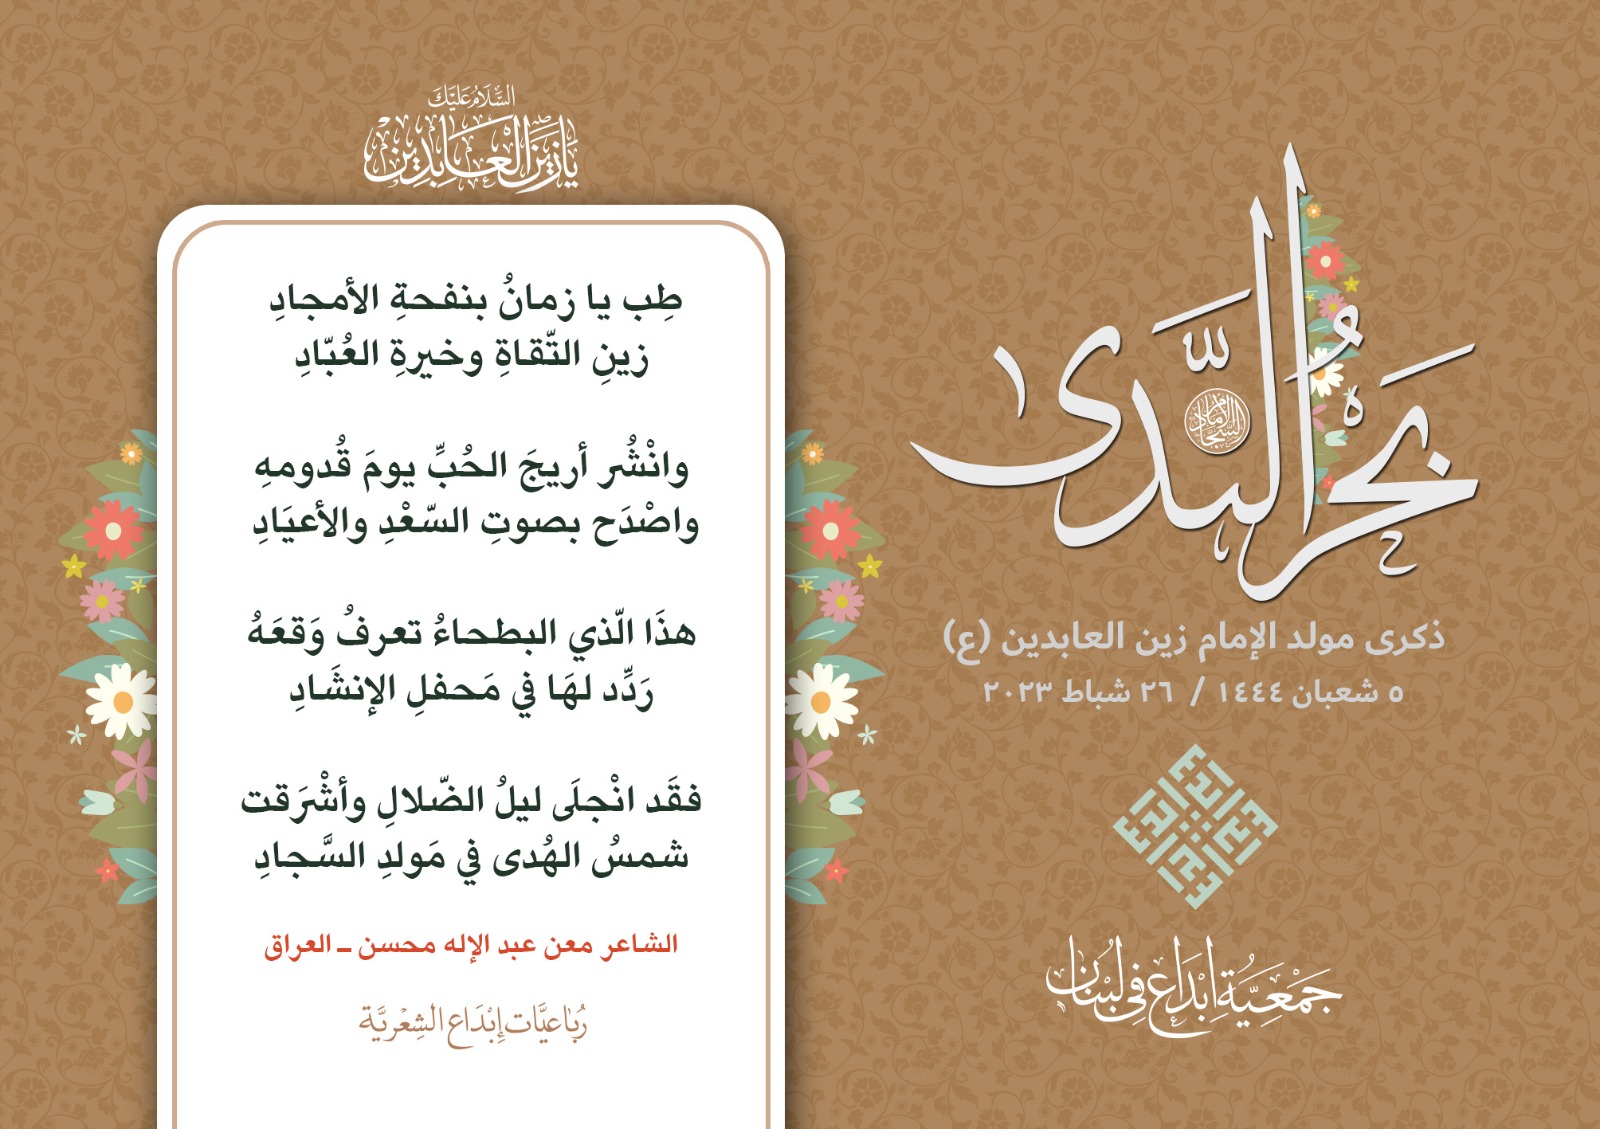 بَحْرُ النَّدَى
الإمام السجاد
ذكرى مولد الإمام زين العابدين (ع)
٥ شعبان ١٤٤٤ / ٢٦ شباط ٢٠٢٣
إبداع
جَمْعِيَّة إبْدَاع فِي لُبْنَان
السَّلَامُ عَلَيْكَ
يَا زَيْنَ الْعَابِدِينَ
طِب يا زمانُ بنفحةِ الأمجادِ
زينِ التّقاةِ وخيرةِ العُبّادِ
وانْشُر أريجَ الحُبِّ يومَ قُدومهِ
واصْدَح بصوتِ السّعْدِ والأعيَادِ
هذَا الّذي البطحاءُ تعرفُ وَقعَهُ
رَدِّد لهَا في مَحفلِ الإنشَادِ
فقَد انْجلَى ليلُ الضّلالِ وأشْرَقت
شمسُ الهُدى في مَولدِ السَّجادِ
الشاعر معن عبد الإله محسن ــ العراق
رُبَاعيَّات إبْدَاع الشِعْريَّة